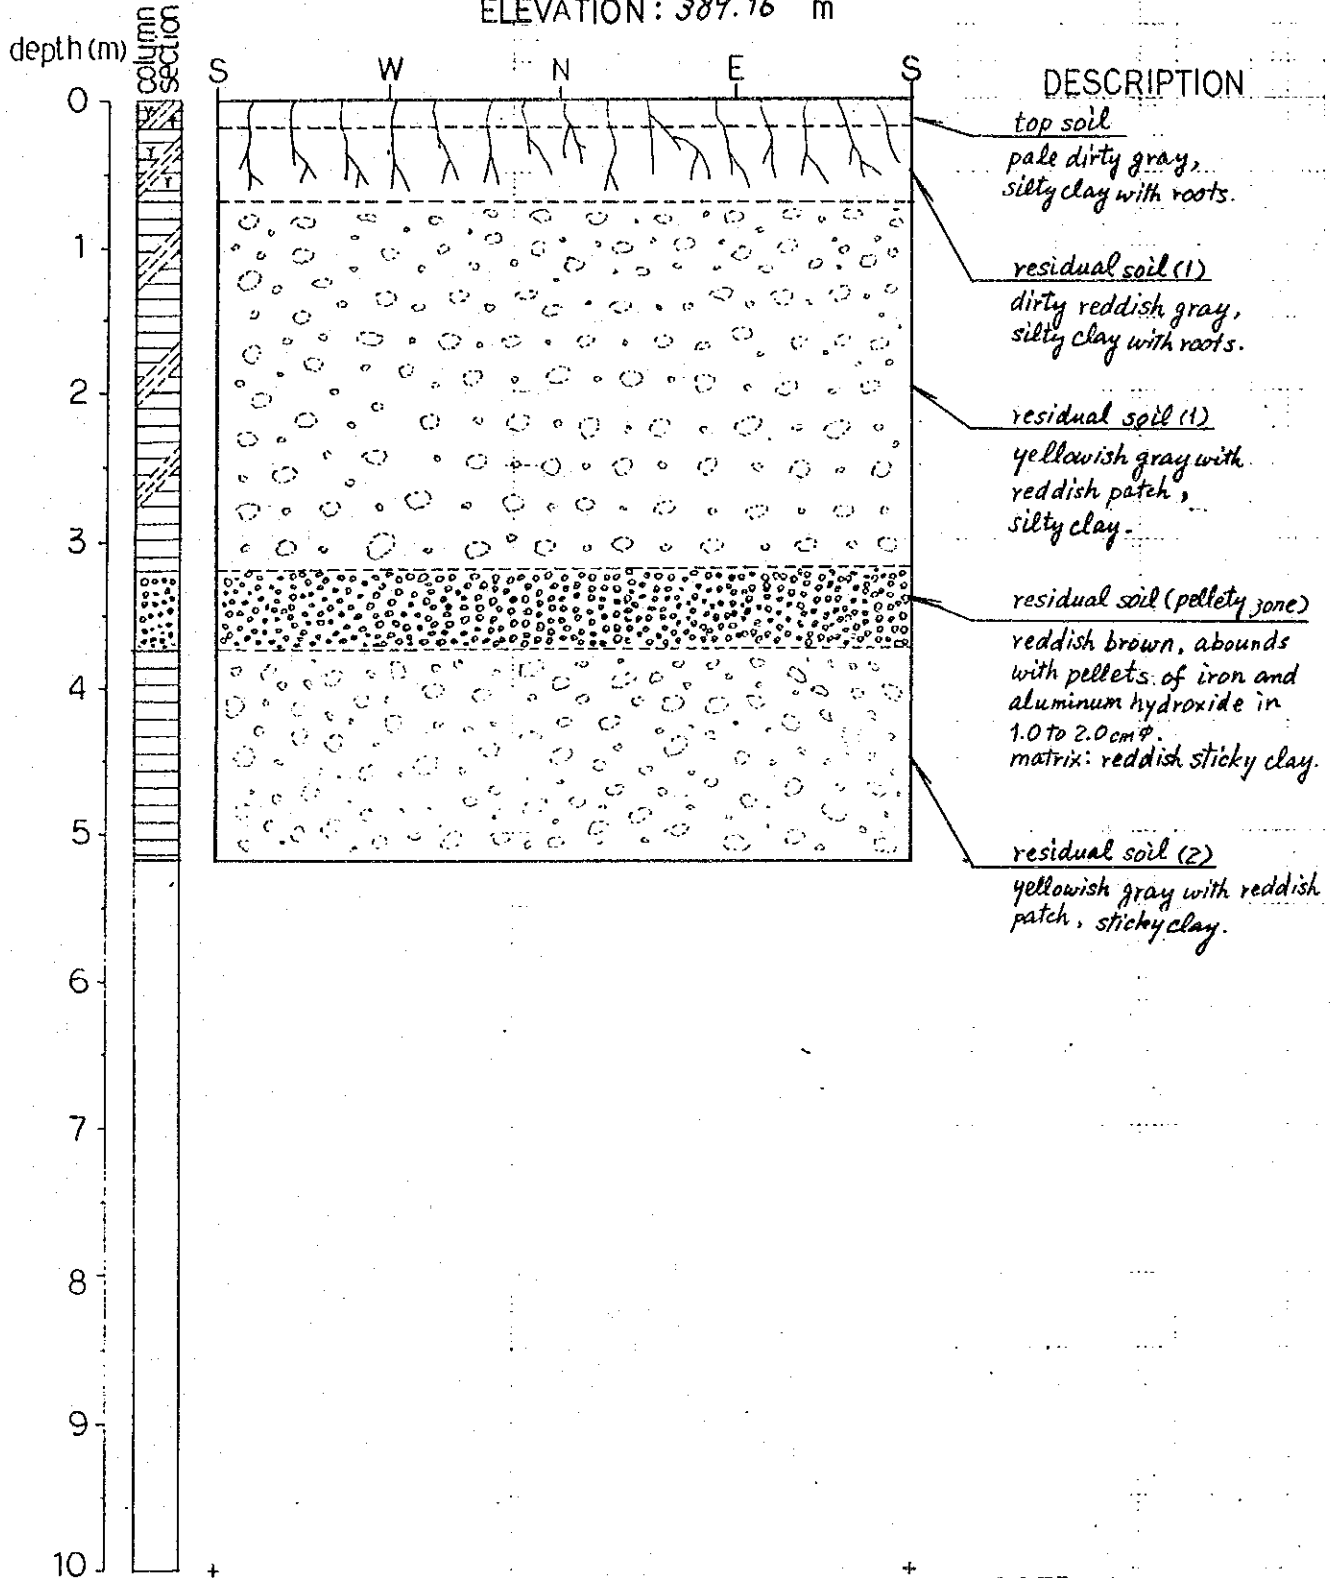 ELEVATION: 389.76 m
depth (m)
column section
S W N E S
DESCRIPTION
0
1
2
3
4
5
6
7
8
9
10
top soil
pale dirty gray,
silty clay with roots.
residual soil (1)
dirty reddish gray,
silty clay with roots.
residual soil (1)
yellowish gray with
reddish patch,
silty clay.
residual soil (pellety zone)
reddish brown, abounds
with pellets of iron and
aluminum hydroxide in
1.0 to 2.0 cm φ.
matrix: reddish sticky clay.
residual soil (2)
yellowish gray with reddish
patch, sticky clay.